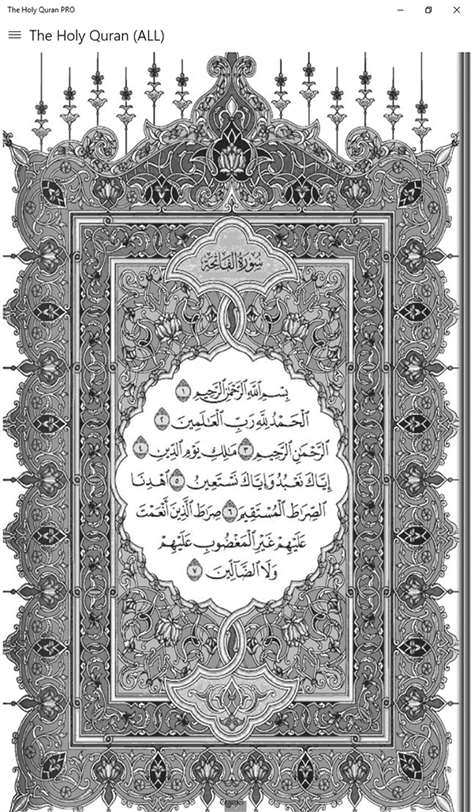 The Holy Quran PRO
The Holy Quran (ALL)
سورة الفاتحة
بِسْمِ ٱللَّهِ ٱلرَّحْمَٰنِ ٱلرَّحِيمِ ١
ٱلْحَمْدُ لِلَّهِ رَبِّ ٱلْعَٰلَمِينَ ٢
ٱلرَّحْمَٰنِ ٱلرَّحِيمِ ٣ مَٰلِكِ يَوْمِ ٱلدِّينِ ٤
إِيَّاكَ نَعْبُدُ وَإِيَّاكَ نَسْتَعِينُ ٥ ٱهْدِنَا
ٱلصِّرَٰطَ ٱلْمُسْتَقِيمَ ٦ صِرَٰطَ ٱلَّذِينَ أَنْعَمْتَ
عَلَيْهِمْ غَيْرِ ٱلْمَغْضُوبِ عَلَيْهِمْ
وَلَا ٱلضَّآلِّينَ ٧